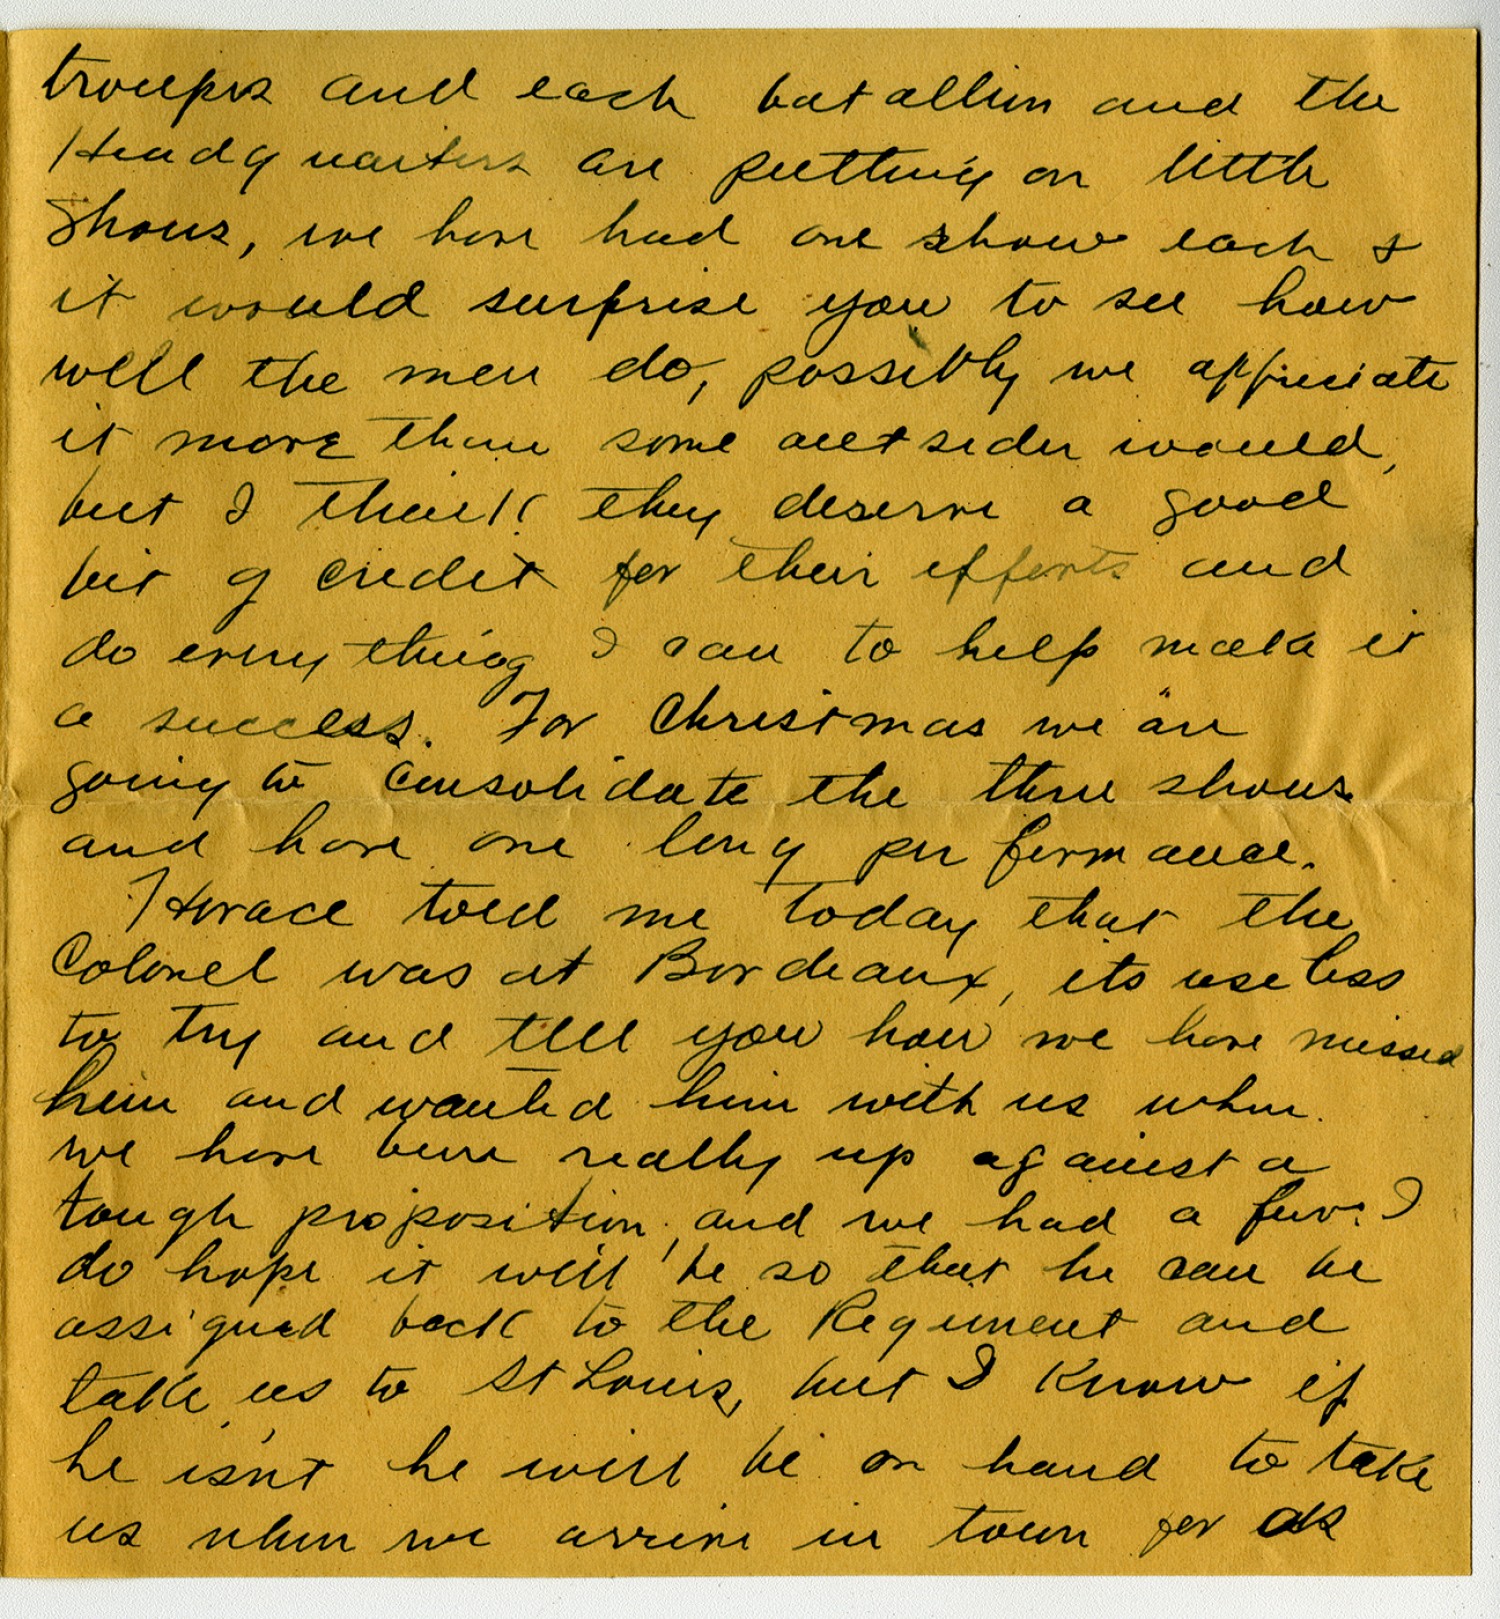 troupes and each batallion and the
Headquarters are putting on little
shows, we have had one show each &
it would surprise you to see how
well the men do, possibly we appreciate
it more than some outsider would,
but I think they deserve a good
bit of credit for their efforts and
do every thing I can to help make it
a success. For Christmas we are
going to consolidate the three shows
and have one long performance.
Horace told me today that the
Colonel was at Bordeaux, its useless
to try and tell you how we have missed
him and wanted him with us when
we have been really up against a
tough proposition, and we had a few. I
do hope it will be so that he can be
assigned back to the Regiment and
take us to St Louis, but I know if
he isn't he will be on hand to take
us when we arrive in town for as